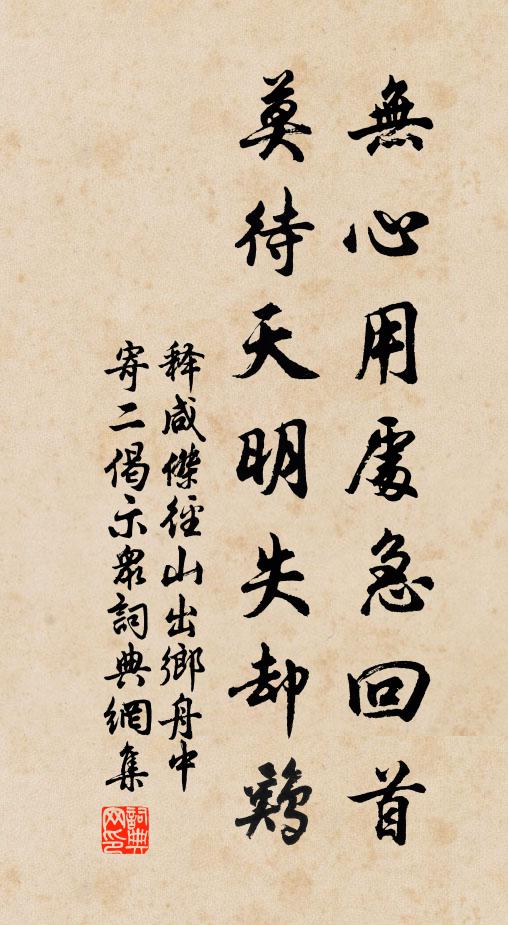 無心用處急回首
莫待天明失却鷄
释咸傑徑山出鄉舟中
寄二偈示衆詞典網集
詞典网印